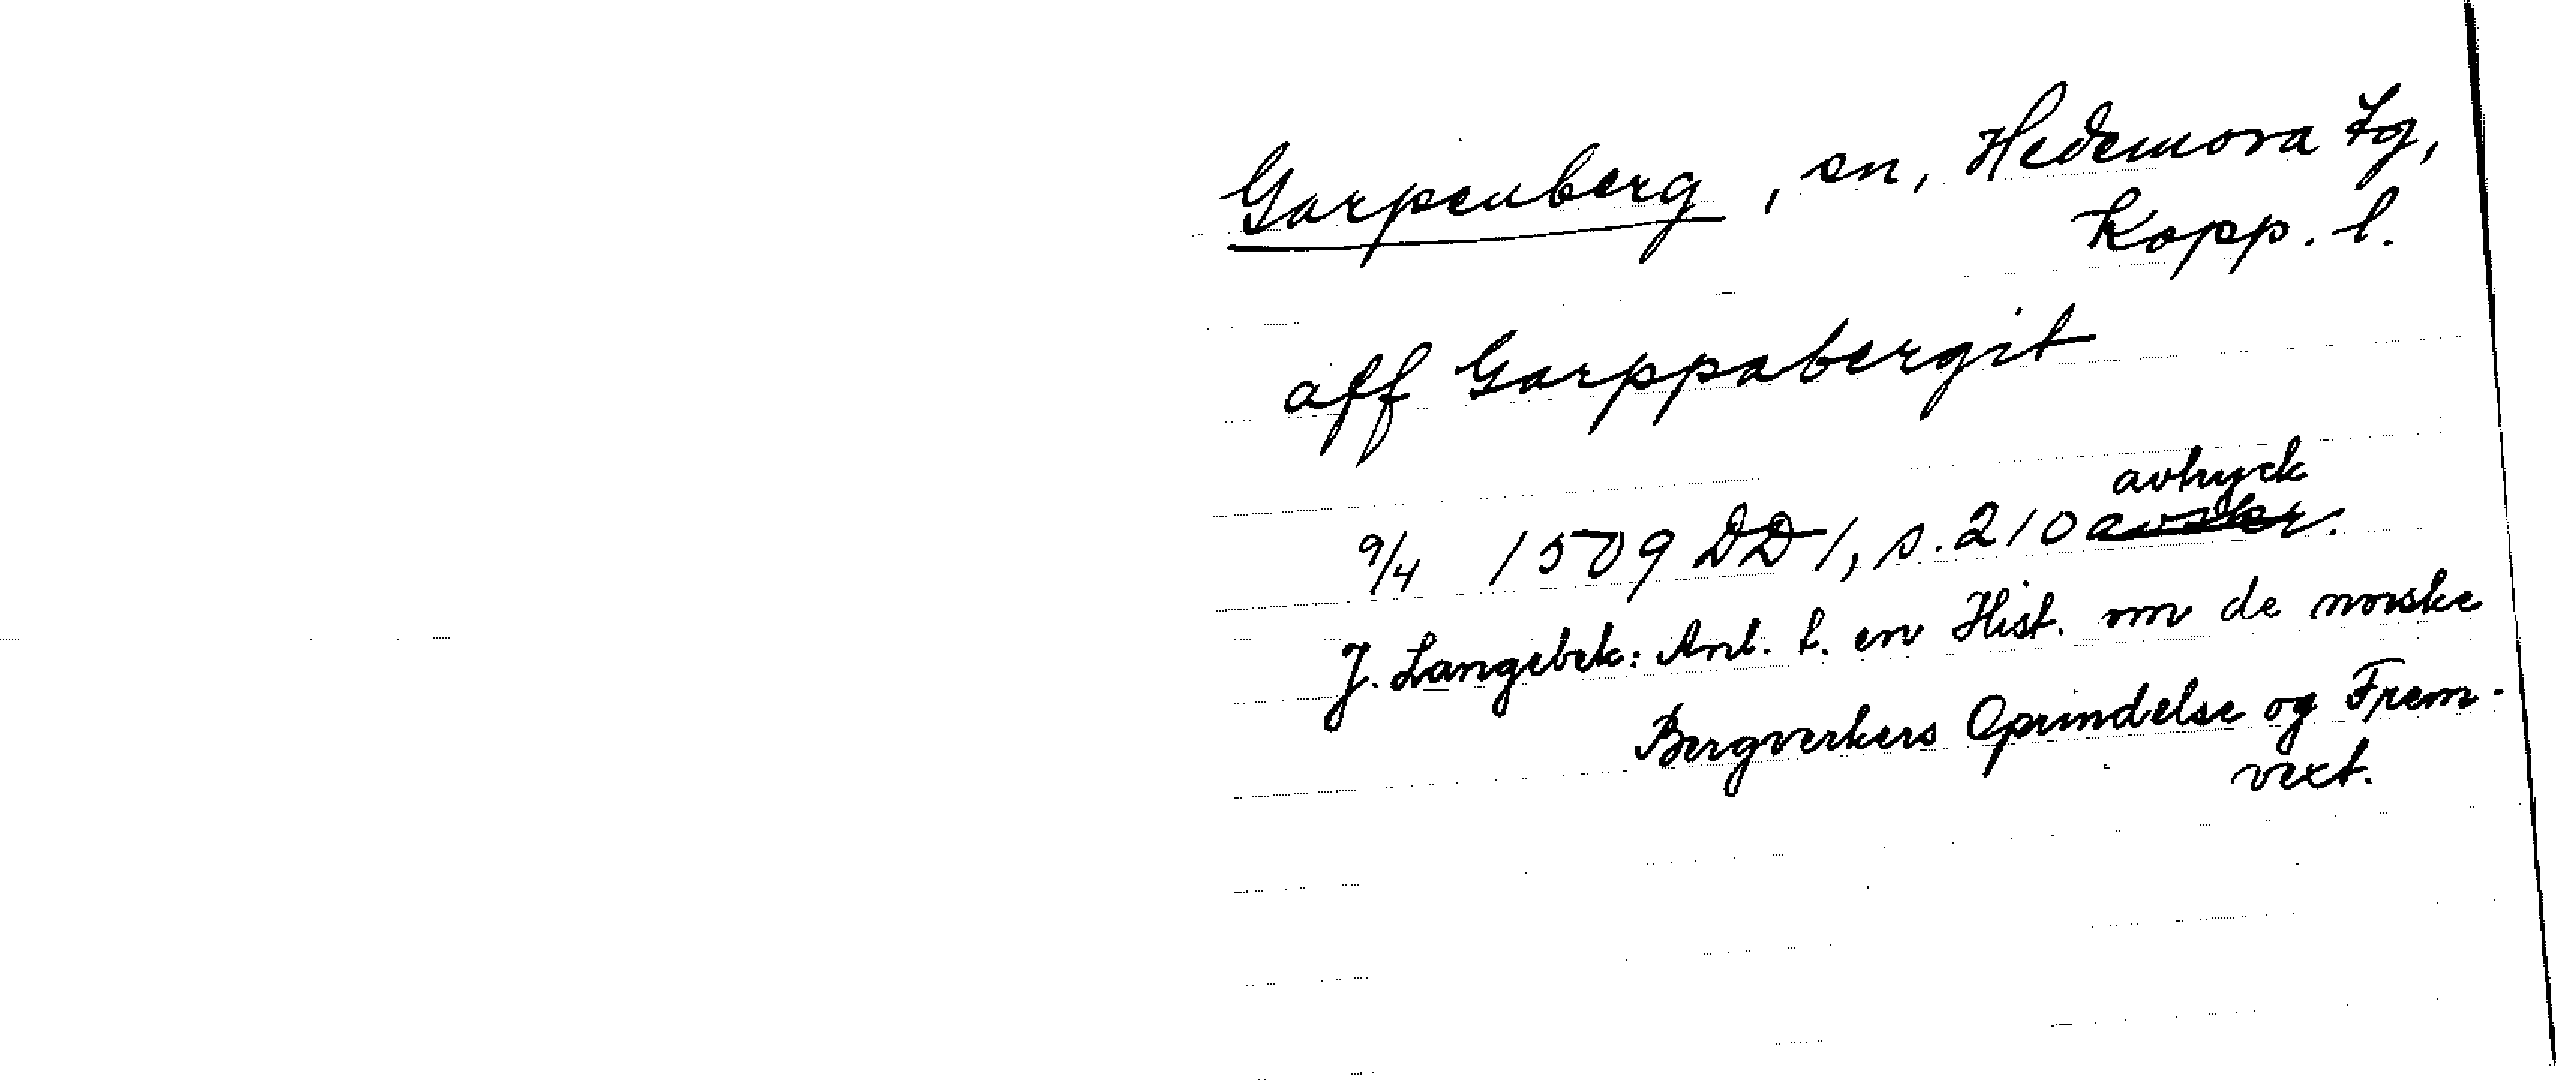 Garpenberg, sn, Hedemora tg,
Kopp. l.
aff Garppabergit
avtryck
9/4 1509 DD 1, s. 210 avskr.
J. Langebek: Anl. t. en Hist. om de norske
Bergverkers Oprindelse og Frem-
vext.